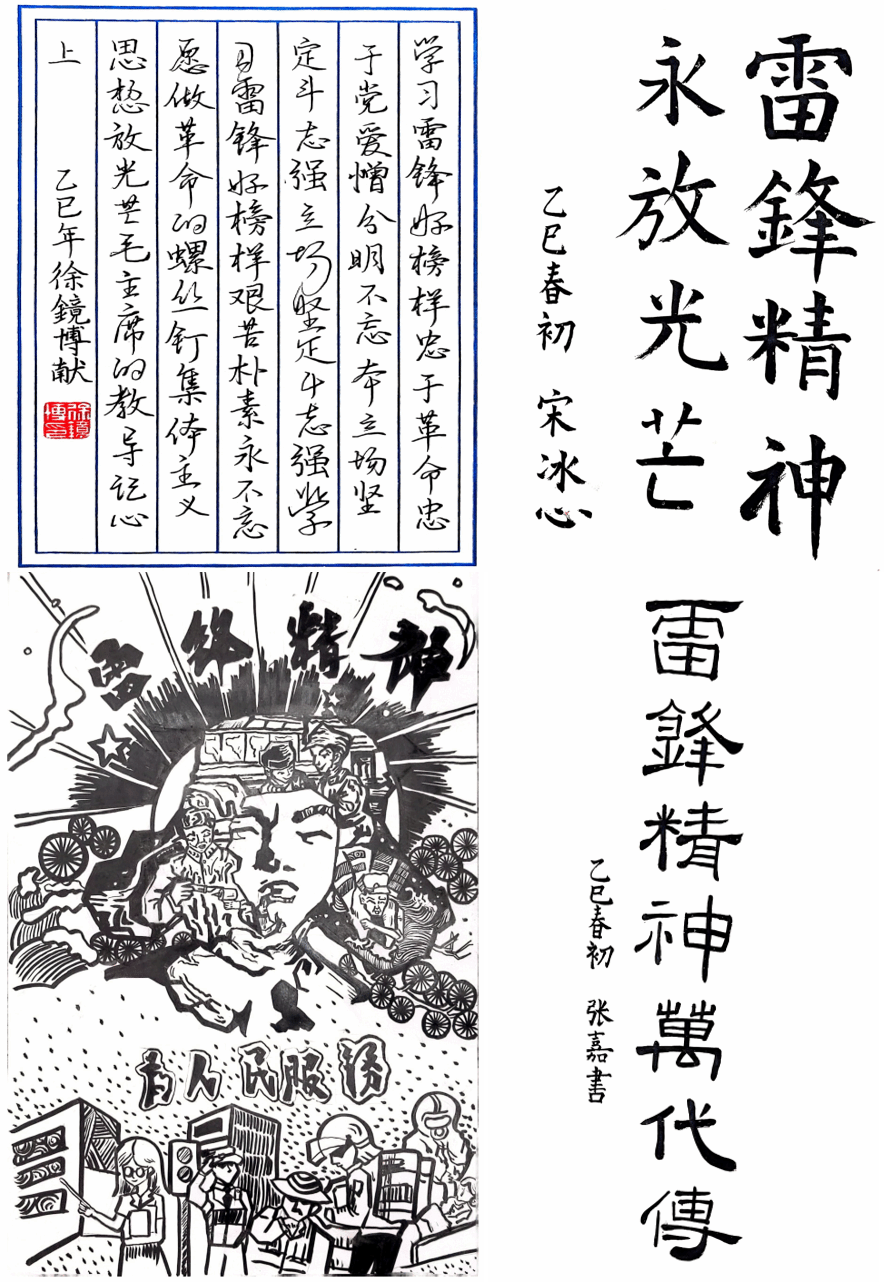 学习雷锋好榜样忠于革命忠
于党爱憎分明不忘本立场坚
定斗志强立场坚定斗志强学
习雷锋好榜样艰苦朴素永不忘
愿做革命的螺丝钉集体主义
思想放光芒毛主席的教导记心
上 乙巳年徐鏡博献
徐鏡博印
雷鋒精神
永放光芒
乙巳春初 宋冰心
雷锋精神
為人民服務
雷鋒精神萬代傳
乙巳春初 张嘉書